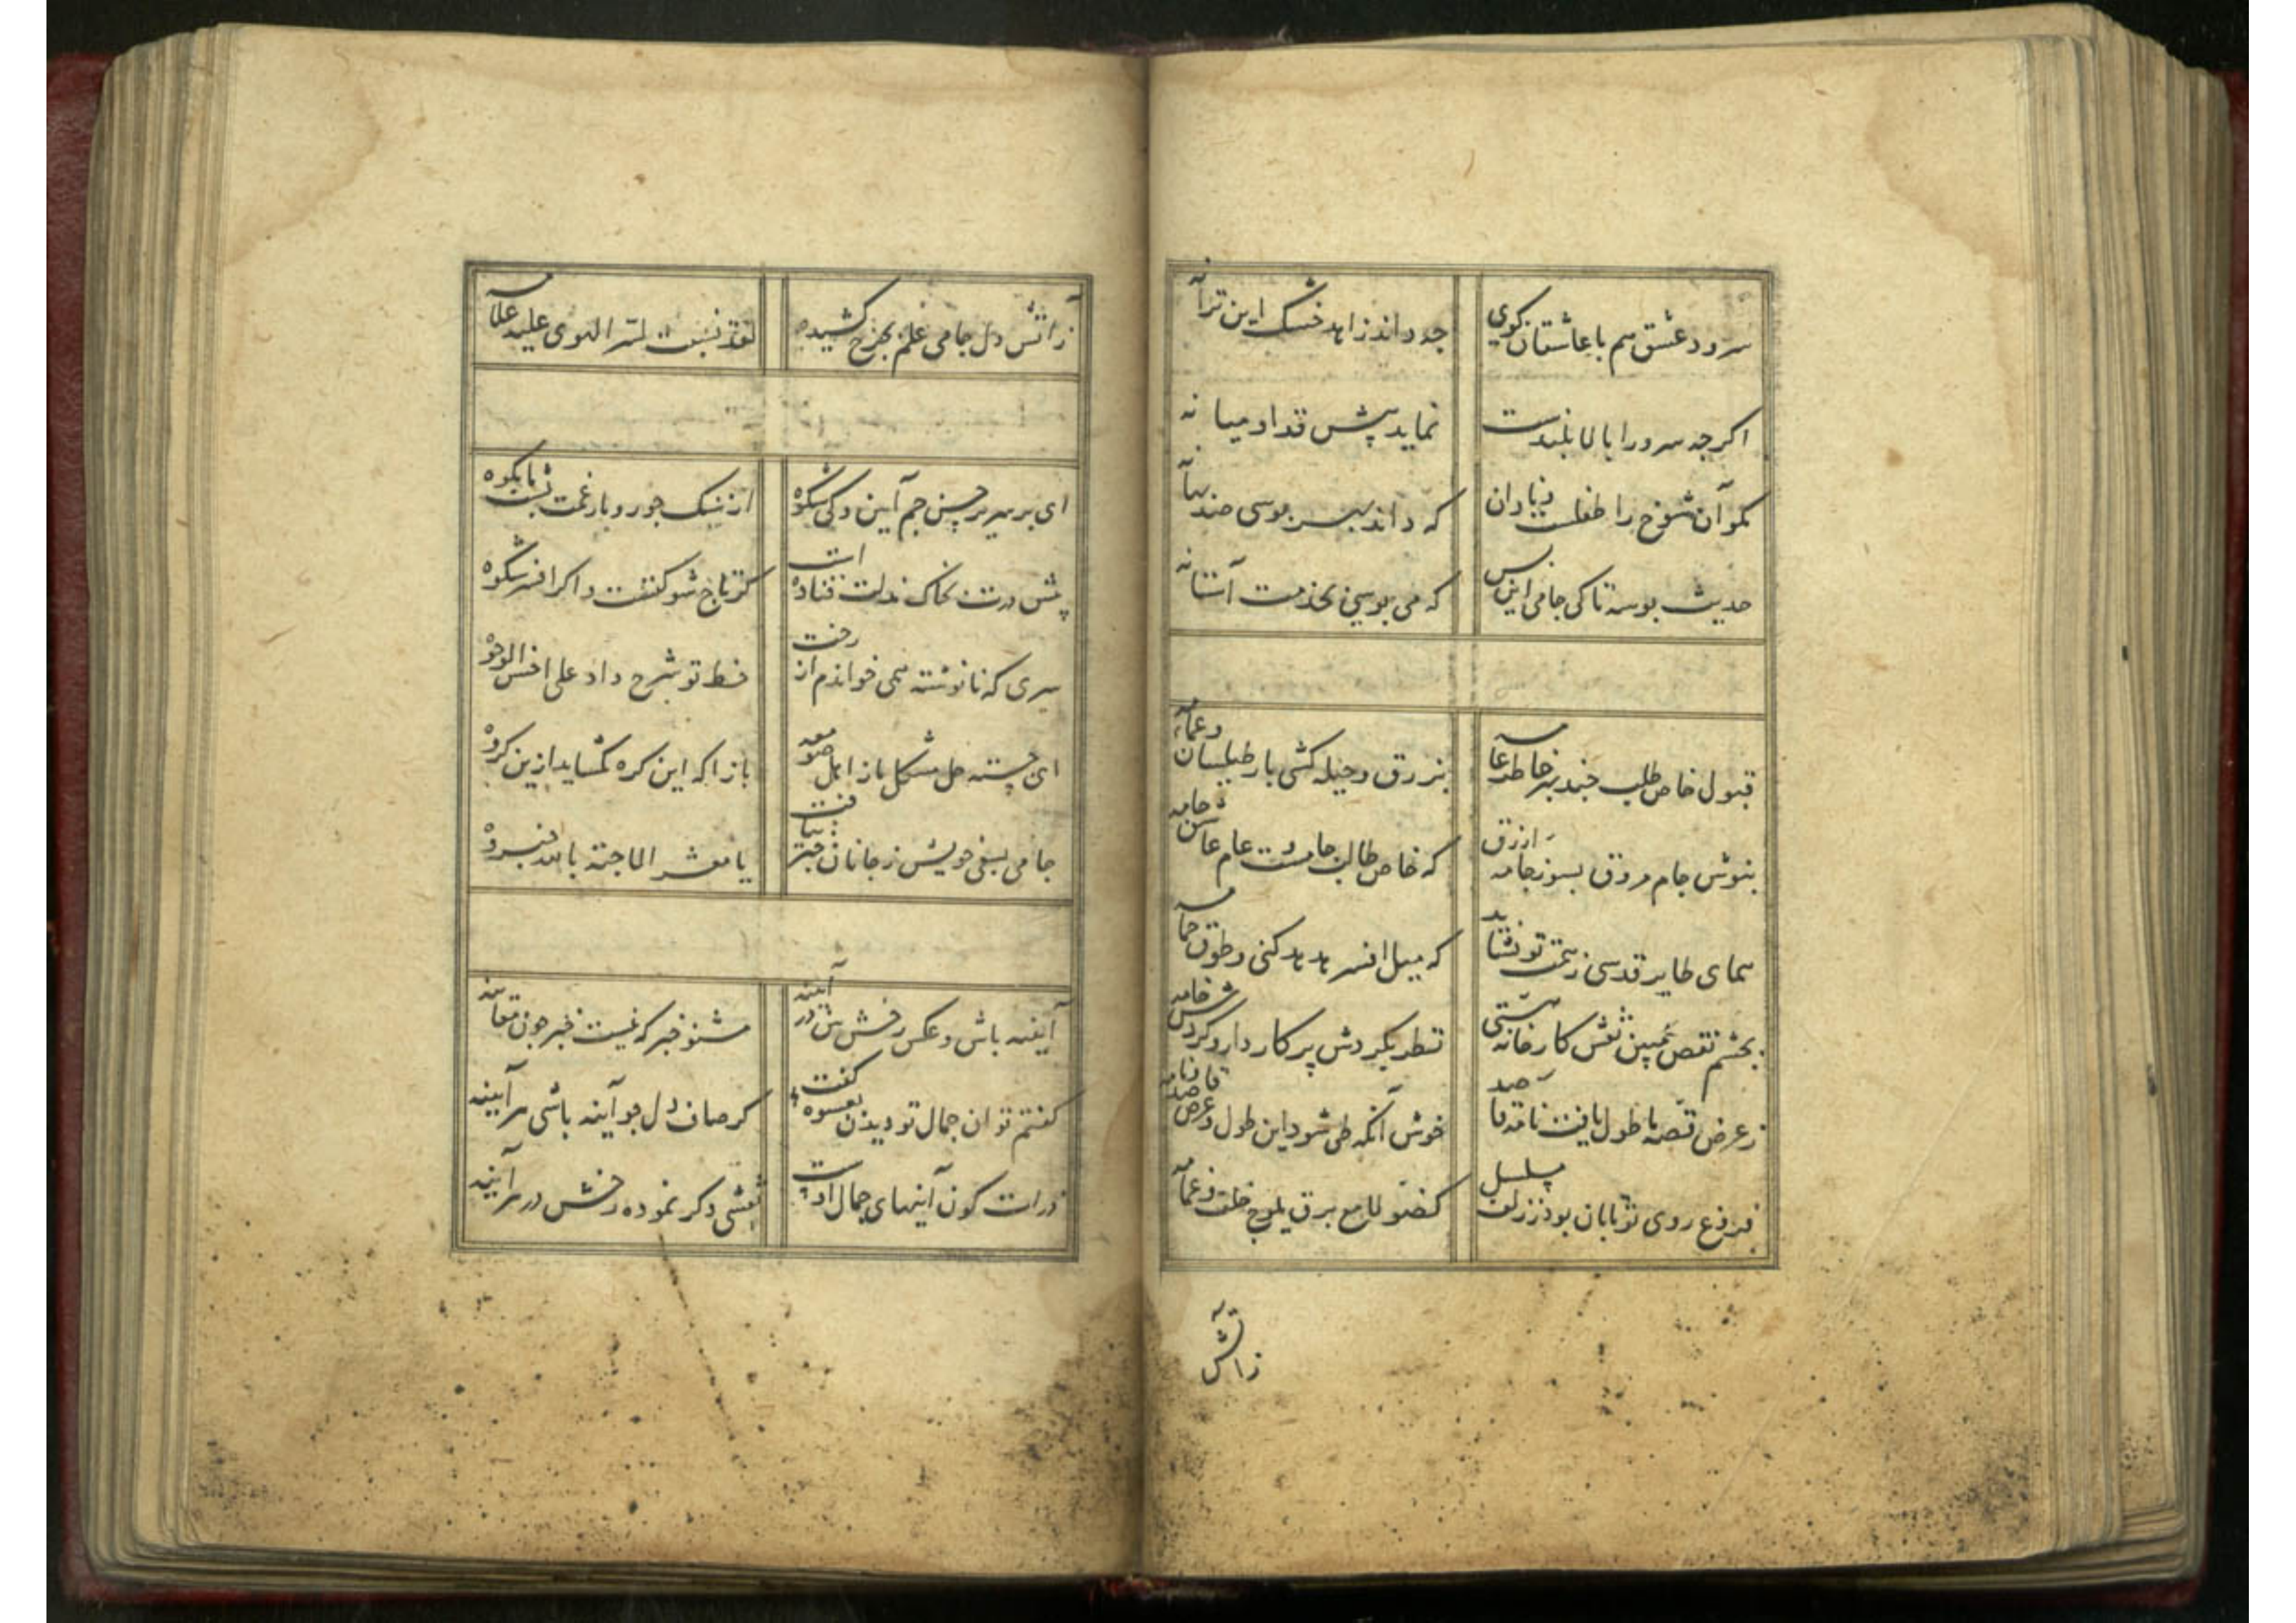 سرود عشق هم با عاشقان کوی جه داند زاهد خشک این ترانه
اکرجه سرو را بالا بلندست نماید پیش قد او میانه
مکو آن شوخ را طفلست و نادان که داند بهر بوسی صد بهانه
حدیث بوسه تا کی جامی این بس که می بوسی بخدمت آستانه
قبول خاص طلب جند بهر خاطر عامه بزرق و حیله کشی بار طیلسان و عمامه
بنوش جام مروق بسوز جامه ازرق که خاص طالب جامست و عام عاشق جامه
همای طایر قدسی ز همت تو نشاید که میل افسر هدهد کنی و طوق حمامه
بجشم نقص مبین نقش کارخانه هستی نظر بکردش پرکار دار و کردش خامه
ز عرض قصه ما طول یافت نامه قاصد خوش آنکه طی شود این طول و عرض قاصد و نامه
فروغ روی تو تابان بود ز زلف مسلسل کضوء لامع برق یلوح خلف غمامه
زاتش
زاتش دل جامی علم بجرخ کشیده لقد نصبت لسر الهوی علیه علامه
ای بر سریر حسن جم آیین و کی شکوه از سنک جور و بار غمت پشت ما بکوه
پیش درت بخاک مذلت فتاده است کر تاج شوکتست و اکر افسر شکوه
سری که نانوشته همی خواندم از رخت خط تو شرح داد علی احسن الوجوه
ای جسته حل مشکل ما ز اهل صومعه بازا که این کره نکشاید ازین کروه
جامی بسعی خویش ز جانان خبر نیافت یا معشر الاحبة بالله خبروه
آیینه باش و عکس رخش بین در آینه مشنو خبر که نیست خبر جون معاینه
کفتم توان جمال تو دیدن بعشوه کفت کر صاف دل جو آینه باشی هر آینه
ذرات کون آینهای جمال اوست نقشی دکر نموده رخش در هر آینه